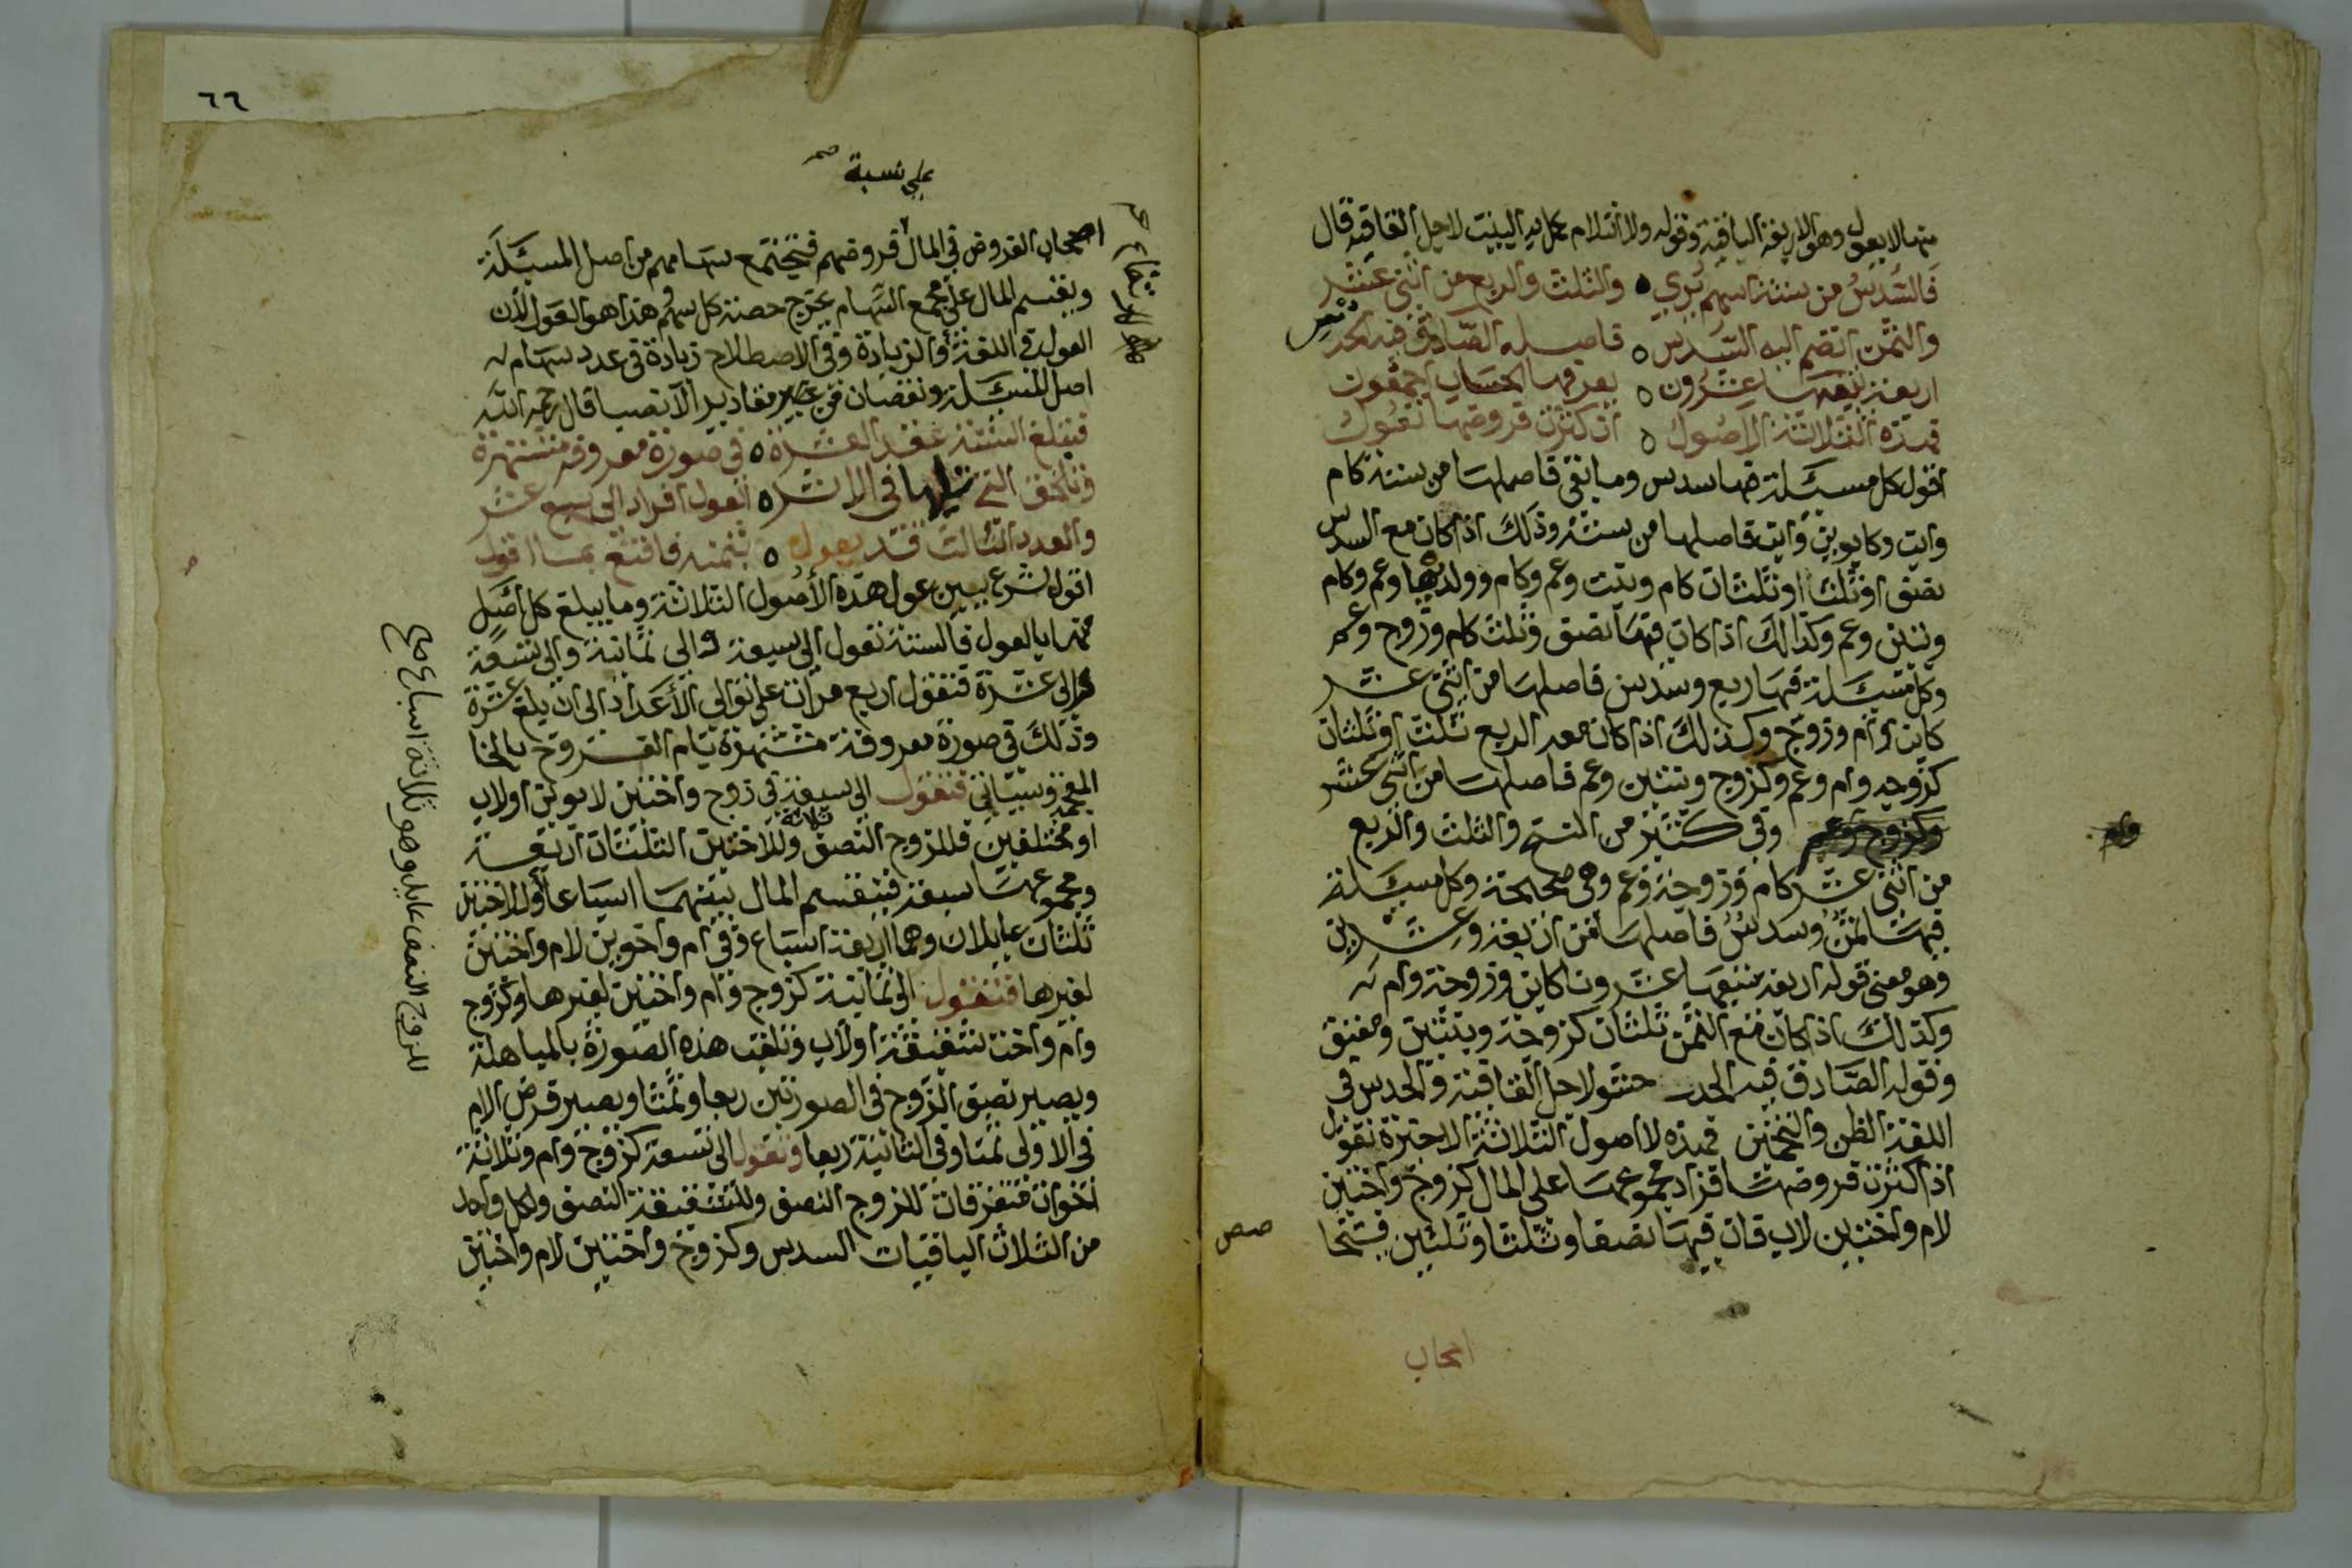 منها لا يعول وهو الاربعة الباقية وقوله ولا انثلام تكملة البيت لاجل القافية قال
فالسدس من ستة اسهم يرى ٥ والثلث والربع من اثنى عشر
والثمن ان ضم اليه السدس ٥ فاصله الصادق فيه الحدس
اربعة يتبعها عشرون ٥ يعرفها الحساب اجمعون
فهذه الثلاثة الاصول ٥ ان كثرت فروضها تعول
اقول كل مسئلة فيها سدس وما بقى فاصلها من ستة كام
وابن وكابوين وابن فاصلها من ستة وذلك اذا كان مع السدس
نصف او ثلث او ثلثان كام وبنت وعم وكام وولديها وعم وكام
وبنتين وعم وكذالك اذا كان فيها نصف وثلث كام وزوج وعم
وكل مسئلة فيها ربع وسدس فاصلها من اثنى عشر
كابن وام وزوج وكذلك اذا كان معد الربع ثلث او ثلثان
كزوجه وام وعم وكزوج وبنتين وعم فاصلها من اثنى عشر
وفى كثير من النسخ والثلث والربع
من اثنى عشر كام وزوجة وعم وهى صحيحة وكل مسئلة
فيها ثمن وسدس فاصلها من اربعة وعشرين
وهو معنى قوله اربعة يتبعها عشرونا كابن وزوجة وام
وكذلك اذا كان مع الثمن ثلثان كزوجة وبنتين ومعتق
وقوله الصادق فيه الحدس حشو لاجل القافية والحدس فى
اللغة الظن والتخمين فهذه لا اصول الثلاثة الاخيرة تعول
اذا كثرت فروضها فزاد مجموعها على المال كزوج واختين
لام واختين لاب فان فيها نصفا وثلثا وثلثين فيتحا
اصحاب
٦٦
على نسبة صح
اصحاب الفروض فى المال فروضهم فتجتمع سهامهم من اصل المسئلة
ويقسم المال على مجمع السهام يخرج حصة كل سهم هذا هو العول لان
العول فى اللغة والزيادة وفى الاصطلاح زيادة فى عدد سهام
اصل المسئلة ونقصان من مقادير الانصبا قال رحمه الله
فتبلغ الستة عقد العشرة ٥ فى صورة معروفة مشتهرة
وتلحق التى تليها فى الاثر ٥ العول افراد الى سبع عشر
والعدد الثالث قد يعول ٥ بثمنه فاقنع بما اقول
اقول شرع يبين عول هذه الاصول الثلاثة وما يبلغ كل اصل
منها بالعول فالستة تعول الى سبعة والى ثمانية والى تسعة
والى عشرة فتعول اربع مرات على توالى الاعداد الى ان يبلغ عشرة
وذلك فى صورة معروفة مشتهرة بام الفروخ بالخا
المعجمة وسياتى فتعول الى سبعة فى زوج واختين لابوين او لاب
او مختلفين فللزوج النصف ثلاثة وللاختين الثلثان اربعة
ومجموعها سبعة فيقسم المال بينهما اسباعا وللاختين
ثلثان عايلان وهما اربعة اسباع وفى ام واخوين لام واختين
لغيرها فتعول الى ثمانية كزوج وام واختين لغيرها وكزوج
وام واخت شقيقة او لاب وتلقب هذه الصورة بالمباهلة
ويصير نصف الزوج فى الصورتين ربعا وثمنا ويصير فرض الام
فى الاولى ثمنا وفى الثانية ربعا وتعول الى تسعة كزوج وام وثلاثة
اخوات متفرقات للزوج النصف وللشقيقة النصف ولكل واحد
من الثلاث الباقيات السدس وكزوج واختين لام واختين
للزوج النصف عايل وهو ثلاثة اسباع صح